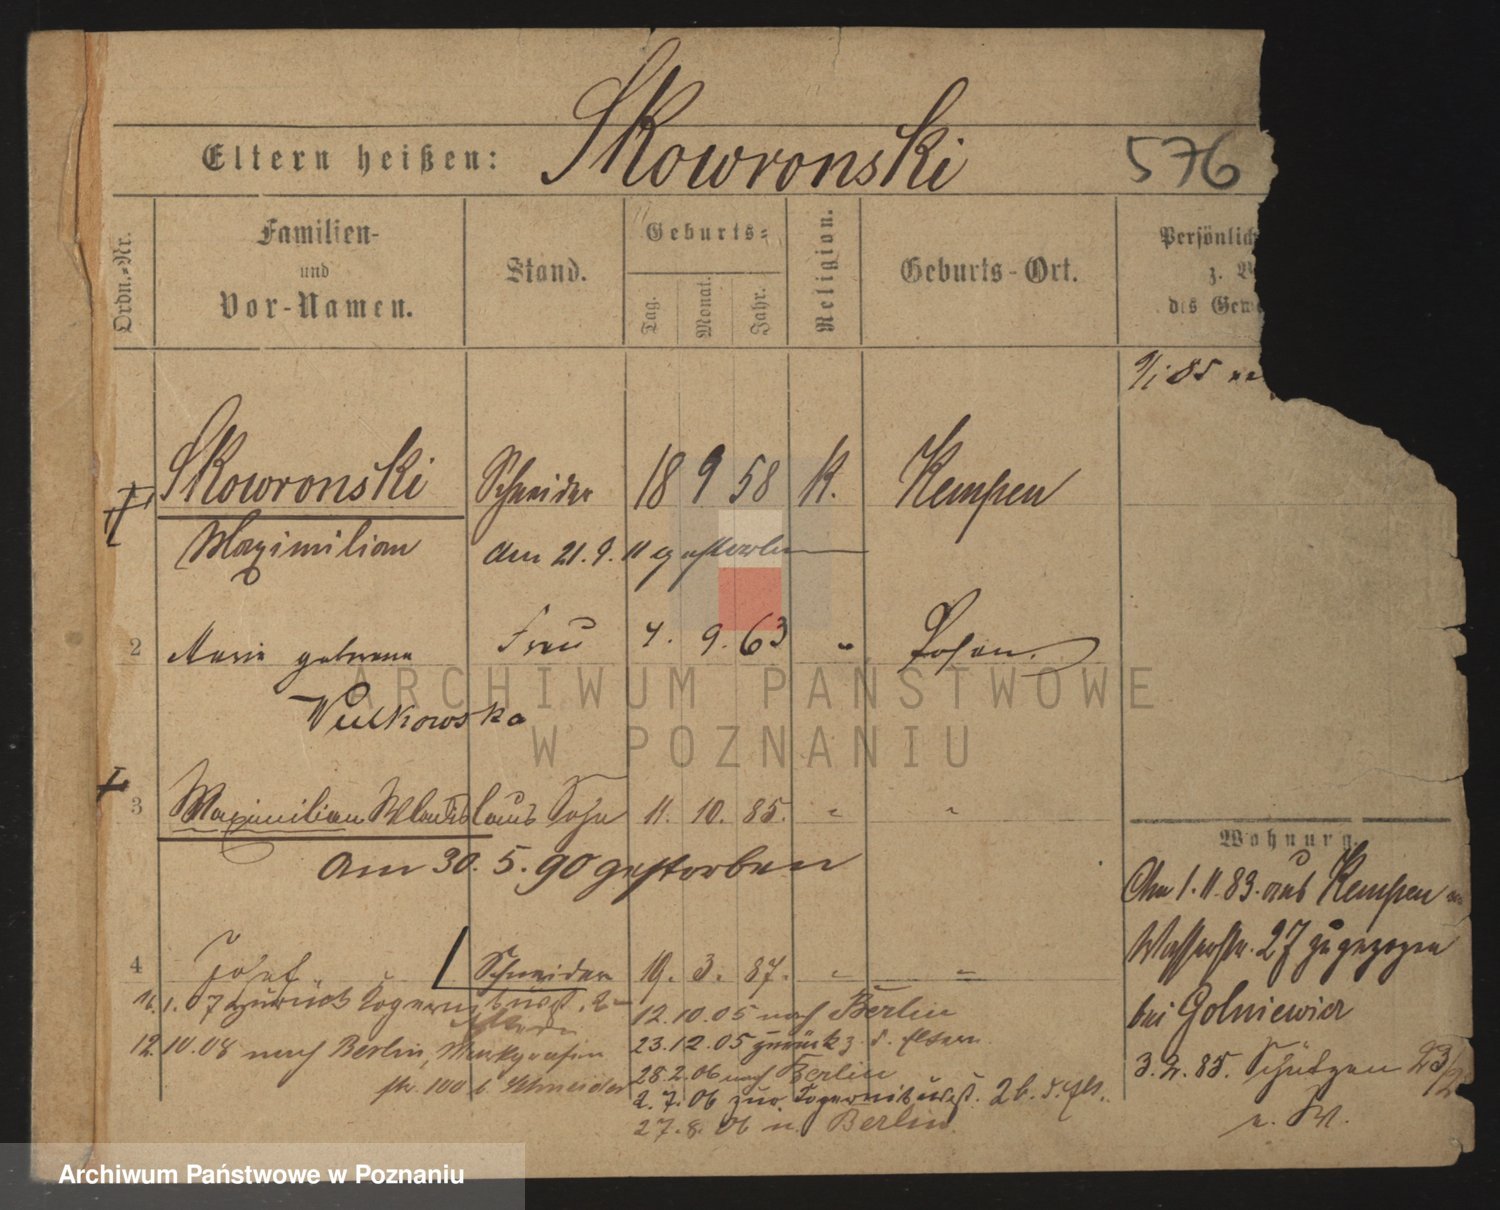 Skowronski
Eltern heißen:
576
Ordn.-Nr.
Familien-
und
Vor-Namen.
Stand.
Geburts-
Tag.
Monat.
Jahr.
Religion.
Geburts-Ort.
Persönlich
z.
des Gew
9/1 85
Skowronski Schneider 18 9 58 K. Kempen
Maximilian am 21. 9. 11 gestorben
2 Marie geborene Frau 4. 9. 63 " Posen.
Wulkowska
ARCHIWUM PAŃSTWOWE
W POZNANIU
3 Maximilian Wladislaus Sohn 11. 10. 85. " "
Am 30. 5. 90 gestorben
4 Josef Schneider 19. 3. 87. " "
1. 07 zurück
12.10.05 nach Berlin
12.10.08 nach Berlin, Markgrafen
23.12.05 zurück z. d. Eltern
str. 100 b. Schneider
28.2.06 nach Berlin
2.7.06 zur. 2 b. d. Elt.
27.8.06 n. Berlin.
Wohnung.
Am 1. 11. 83. aus Kempen
Wasserstr. 27 zugezogen
bei Golniewicz
3. 2. 85. Schützen 23/2
Archiwum Państwowe w Poznaniu